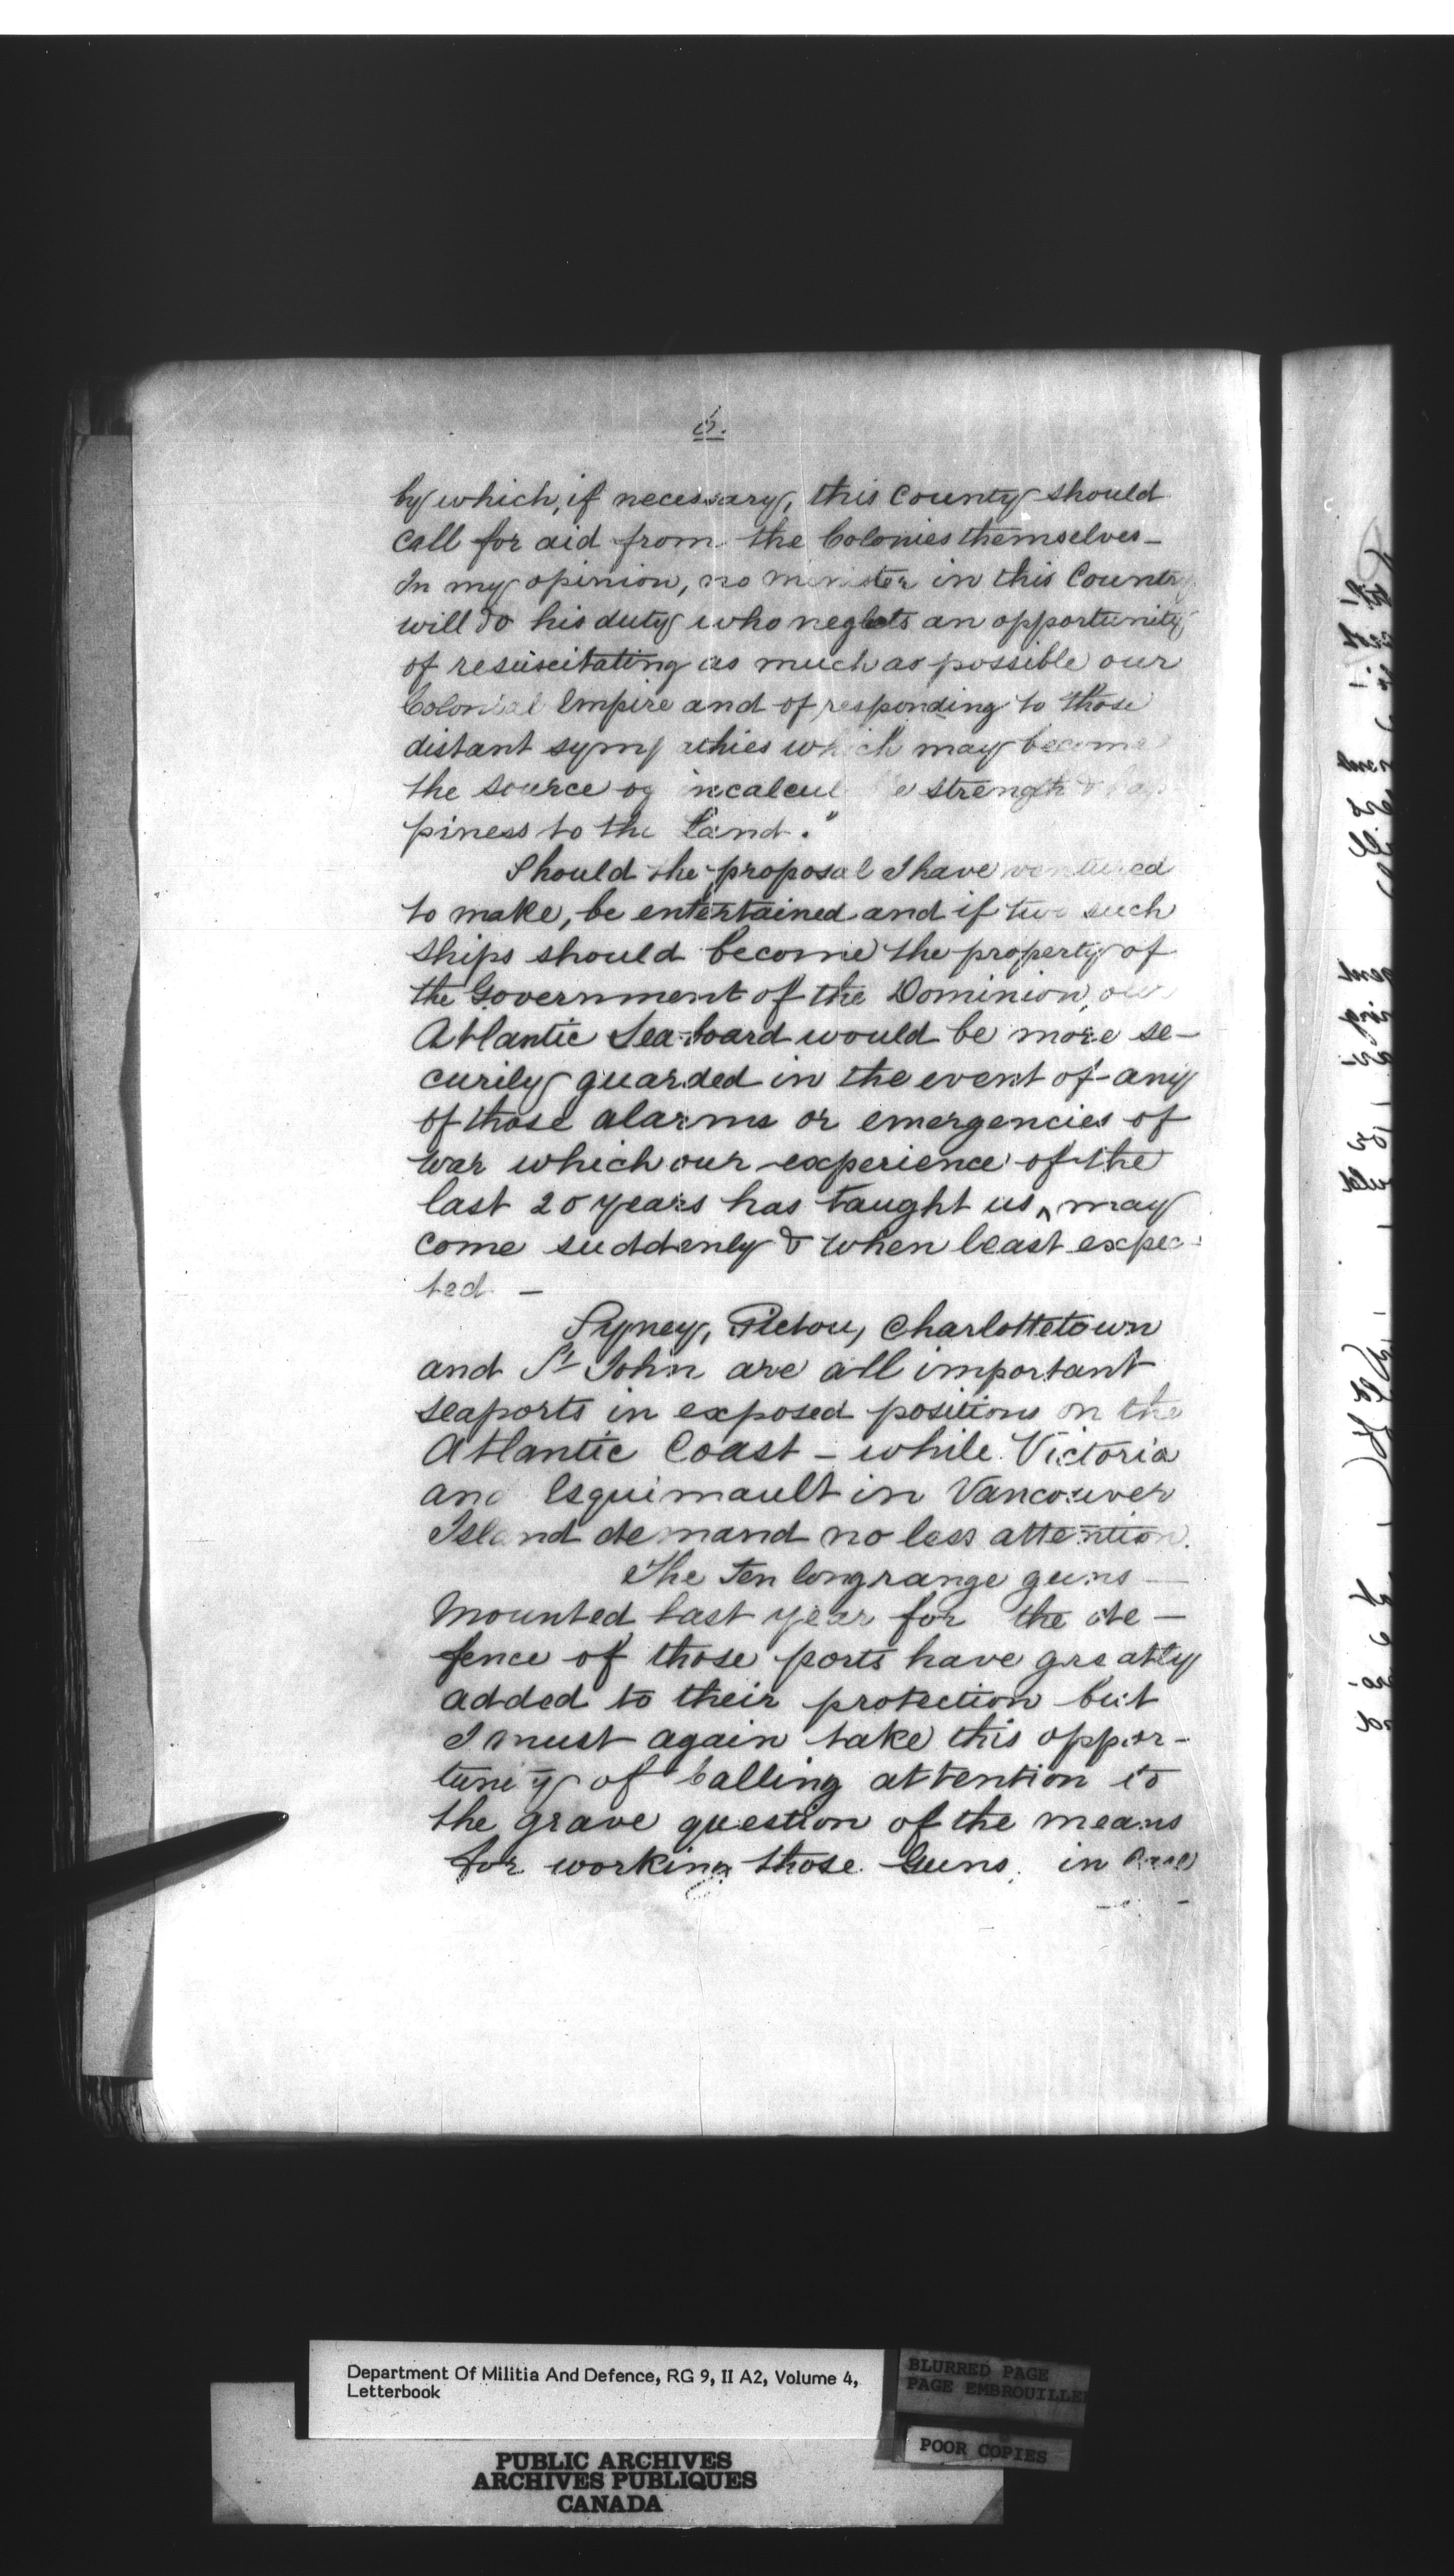 6.
by which, if necessary, this County should
call for aid from the Colonies themselves —
In my opinion, no minister in this Country
will do his duty who neglects an opportunity
of resuscitating as much as possible our
Colonial Empire and of responding to those
distant sympathies which may become
the source of incalcul e strength &
piness to the Land."
Should the proposal I have ventured
to make, be entertained and if two such
ships should become the property of
the Government of the Dominion, our
Atlantic Sea-board would be more se-
curily guarded in the event of any
of those alarms or emergencies of
war which our experience of the
last 20 years has taught us ‸ may
come suddenly & when least expec-
ted —
Sydney, Pictou, Charlottetown
and St John are all important
seaports in exposed positions on the
Atlantic Coast – while Victoria
and Esquimault in Vancouver
Island demand no less attention.
The Ten long range guns —
Mounted last year for the de —
fence of those ports have greatly
added to their protection but
I must again take this oppor-
tunity of Calling attention to
the grave question of the means
for working those Guns, in
Department Of Militia And Defence, RG 9, II A2, Volume 4,
Letterbook
BLURRED PAGE
PAGE EMBROUILLEE
POOR COPIES
PUBLIC ARCHIVES
ARCHIVES PUBLIQUES
CANADA